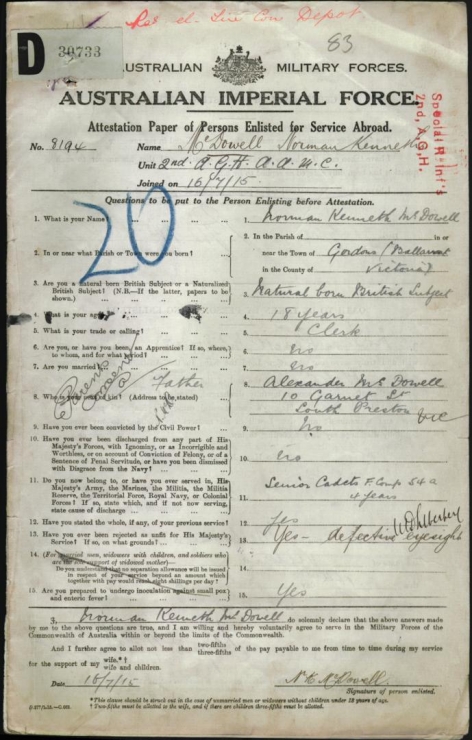 Res. el. Depot
D 30733
83
AUSTRALIAN MILITARY FORCES.
AUSTRALIAN IMPERIAL FORCE.
Special Reinf'ts
2nd. A.G.H.
Attestation Paper of Persons Enlisted for Service Abroad.
No. 8194 Name McDowell Norman Kenneth
Unit 2nd. A.G.H. A.A.M.C.
Joined on 16/7/15.
Questions to be put to the Person Enlisting before Attestation.
20
1. What is your Name? 1. Norman Kenneth McDowell
2. In or near what Parish or Town were you born? 2. In the Parish of in or
near the Town of Gordons (Ballarat
in the County of Victoria)
3. Are you a natural born British Subject or a Naturalized
British Subject? (N.B.—If the latter, papers to be
shown.) 3. Natural born British Subject
4. What is your age? 4. 18 years
5. What is your trade or calling? 5. Clerk
6. Are you, or have you been, an Apprentice? If so, where,
to whom, and for what period? 6. No
7. Are you married? 7. No
Parents Consent
Father
8. Who is your next of kin? (Address to be stated) 8. Alexander McDowell
10 Garnet St
South Preston Vic
9. Have you ever been convicted by the Civil Power? 9. No
10. Have you ever been discharged from any part of His
Majesty's Forces, with Ignominy, or as Incorrigible and
Worthless, or on account of Conviction of Felony, or of a
Sentence of Penal Servitude, or have you been dismissed
with Disgrace from the Navy? 10. No
11. Do you now belong to, or have you ever served in, His
Majesty's Army, the Marines, the Militia, the Militia
Reserve, the Territorial Force, Royal Navy, or Colonial
Forces? If so, state which, and if not now serving,
state cause of discharge 11. Senior Cadets F Comp 54a
4 years
12. Have you stated the whole, if any, of your previous service? 12. Yes
13. Have you ever been rejected as unfit for His Majesty's
Service? If so, on what grounds? 13. Yes - defective eyesight
14. (For married men, widowers with children, and soldiers who
are the sole support of widowed mother—
Do you understand that no separation allowance will be
issued in respect of your service beyond an amount which
together with pay would reach eight shillings per day?
15. Are you prepared to undergo inoculation against small pox
and enteric fever? 15. Yes
I, Norman Kenneth McDowell do solemnly declare that the above answers made
by me to the above questions are true, and I am willing and hereby voluntarily agree to serve in the Military Forces of the
Commonwealth of Australia within or beyond the limits of the Commonwealth.
And I further agree to allot not less than two-fifths three-fifths of the pay payable to me from time to time during my service
for the support of my wife.* † wife and children.
Date 16/7/15 N.K. McDowell
Signature of person enlisted.
* This clause should be struck out in the case of unmarried men or widowers without children under 18 years of age.
† Two-fifths must be allotted to wife, and if there are children three-fifths must be allotted.